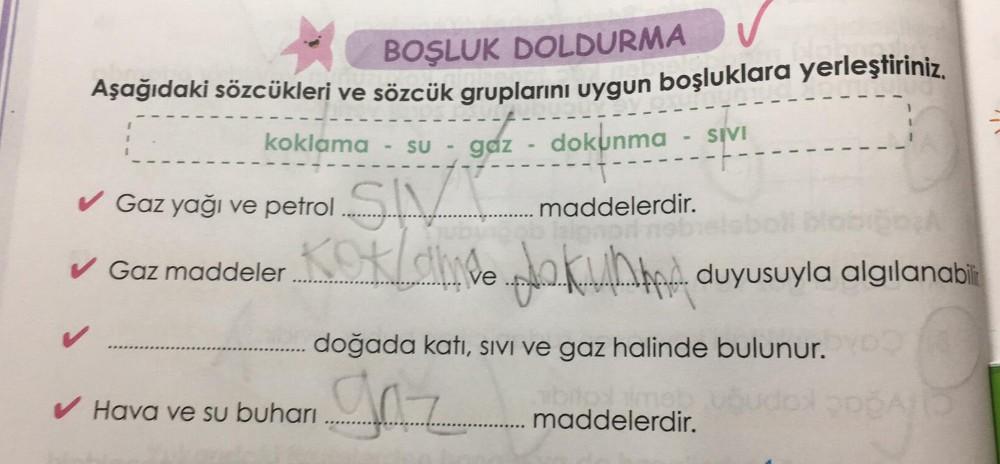 BOŞLUK DOLDURMA
Aşağıdaki sözcükleri ve sözcük gruplarını uygun boşluklara yerleştiriniz.
koklama - su - gaz - dokunma - sıvı
Gaz yağı ve petrol SIVI maddelerdir.
Gaz maddeler koklama ve dokunma duyusuyla algılanabilir
.......... doğada katı, sıvı ve gaz halinde bulunur.
Hava ve su buharı gaz maddelerdir.